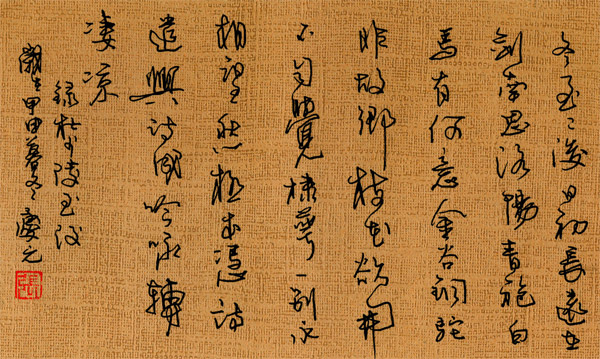 冬至〻後日初長遠在
劍南思洛陽青袍白
馬有何意金谷銅駝
非故鄉梅花欲開
不自覺棣萼一別永
相望愁極本憑詩
遣興詩成吟咏轉
凄涼
録杜少陵至後
歲在甲申暮冬慶元